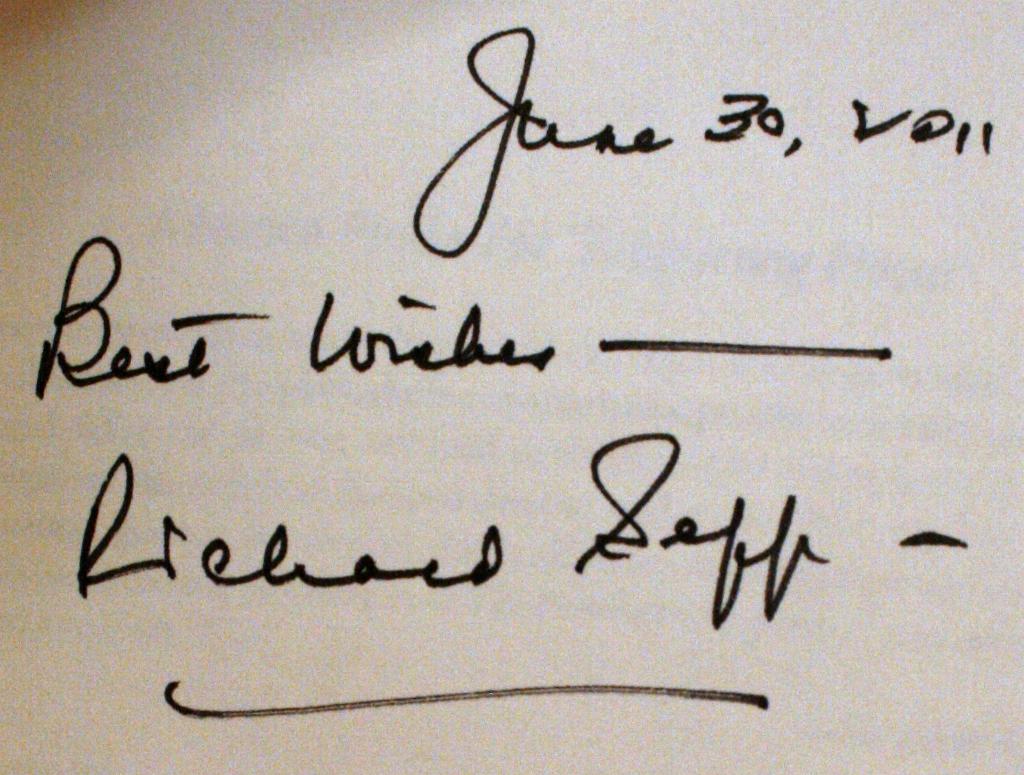 June 30, 2011
Best Wishes —
Richard Sepp -